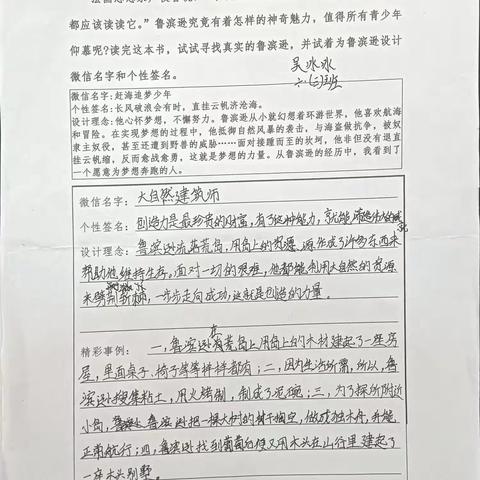 都应该读读它。”鲁滨逊究竟有着怎样的神奇魅力，值得所有青少年
仰慕呢？读完这本书，试试寻找真实的鲁滨逊，并试着为鲁滨逊设计
微信名字和个性签名。
吴冰冰
六（三）班
微信名字：赶海追梦少年
个性签名：长风破浪会有时，直挂云帆济沧海。
设计理念：他心怀梦想，不懈努力。鲁滨逊从小就幻想着环游世界，他喜欢航海
和冒险。在实现梦想的过程中，他抵御自然风暴的袭击，与海盗做抗争，被奴
隶主奴役，甚至还遭到野兽的威胁……面对接踵而至的坎坷，他非但没有退直
挂云帆缩，反而愈战愈勇，这就是梦想的力量。从鲁滨逊的经历中，我看到了
一个愿为梦想奔跑的人。
微信名字：大自然建筑师
个性签名：创造力是最珍贵的财富，有了这种能力，就能
设计理念：鲁滨逊流落荒岛，用岛上的资源 造成了许多东西来
帮助他维持生存。面对一切的艰难，他都能利用大自然的资源
来 ，一步步走向成功，这就是创造的力量。
精彩事例：一，鲁滨逊在荒岛上用岛上的木材建起了一座房
屋，里面桌子、椅子等等样样都有；二，因为生活所需，所以，鲁
滨逊搜集粘土，用火烧制，制成了泥碗；三，为了探所附近
小岛，鲁滨逊把一棵大树的树干掏空，做成独木舟，并能
正常航行；四，鲁滨逊找到葡萄后便又用木头在山行里建起了
一座木头别墅。